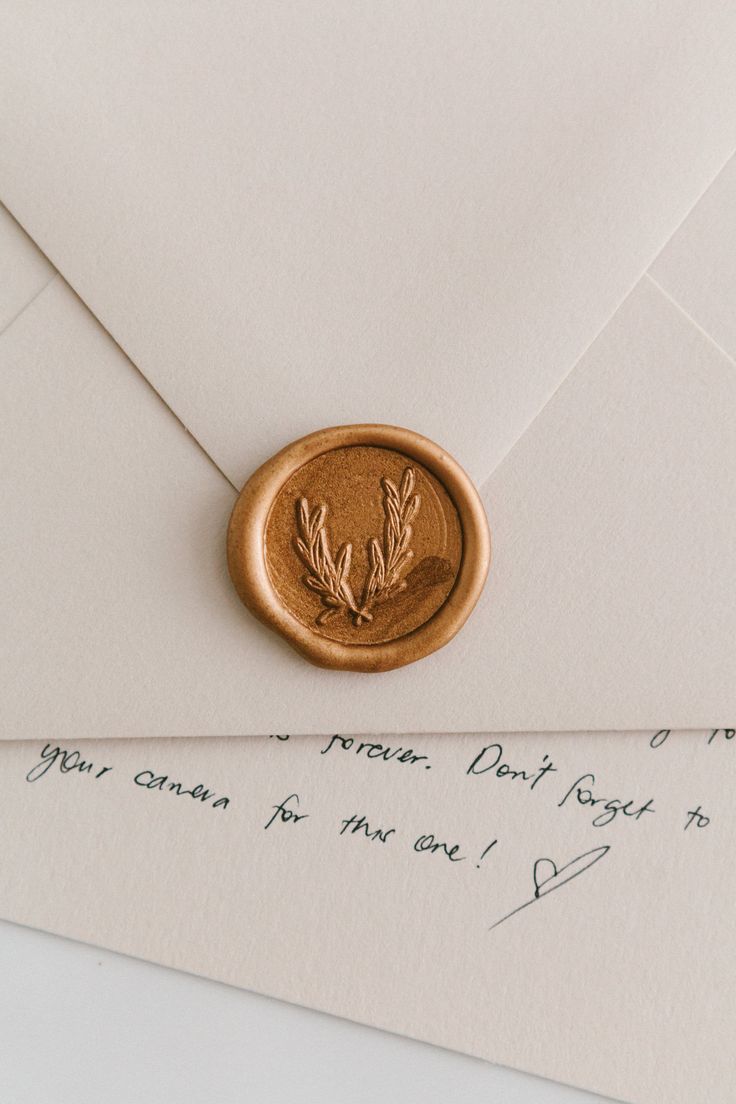 forever. Don't forget to
your camera for this one!